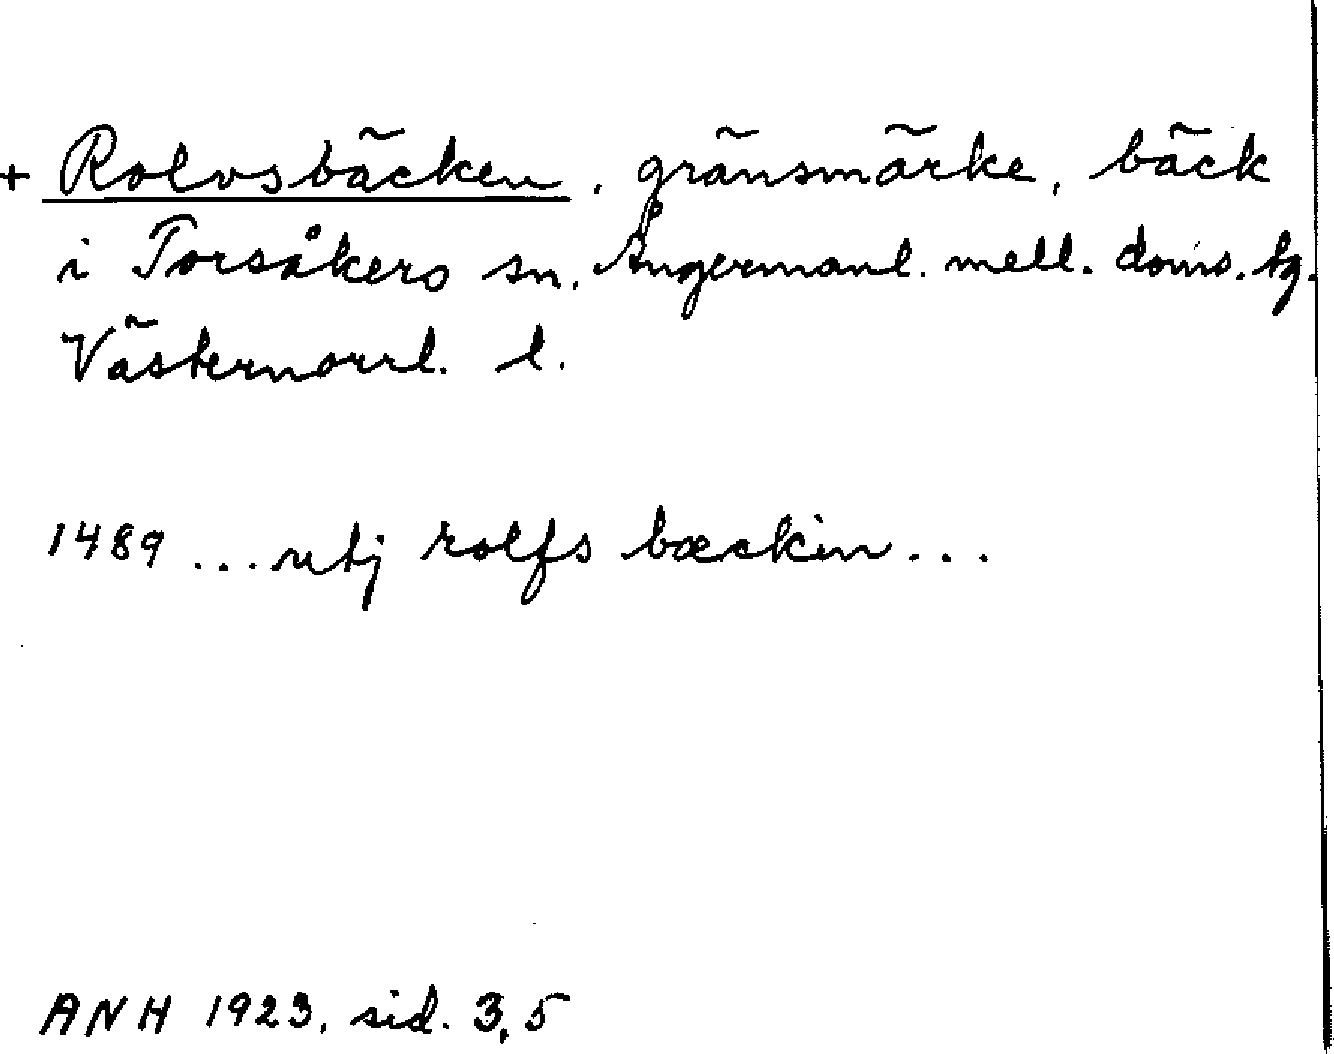 + Rolvsbäcken, gränsmärke, bäck
i Torsåkers sn, Ångermanl. mell. doms. tg.
Västernorrl. l.
1489 ... utj rolfs bæckin ...
ANH 1923, sid. 3,5